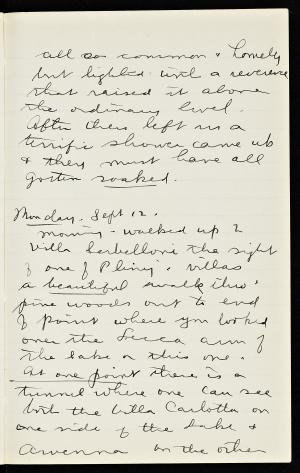 all so common & homely
but lighted with a reverence
that raised it above
the ordinary level.
After they left us a
terrific shower came up
& they must have all
gotten soaked.
Monday. Sept 12.
Morning - walked up to
Villa Serbelloni the sight
of one of Pliny's villas
a beautiful walk thro'
pine woods out to end
of point where you looked
over the Lecco arm of
the lake & this one.
At one point there is a
tunnel where one can see
both the Villa Carlotta on
one side of the lake &
on the other